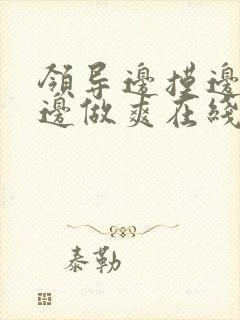 領导邊摸邊
邊做爽在綫
泰勒